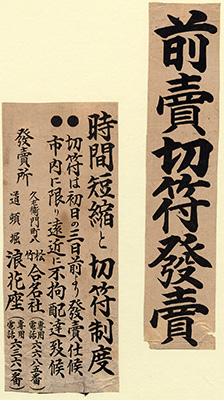 前賣切符發賣
時間短縮と切符制度
●切符は初日の三日前より發賣仕候
●市内に限り遠近に不拘配達致候
發賣所
久左衛門町八
松竹合名社
(專用電話六六五番)
道頓堀
浪花座
(專用電話六三六二番)